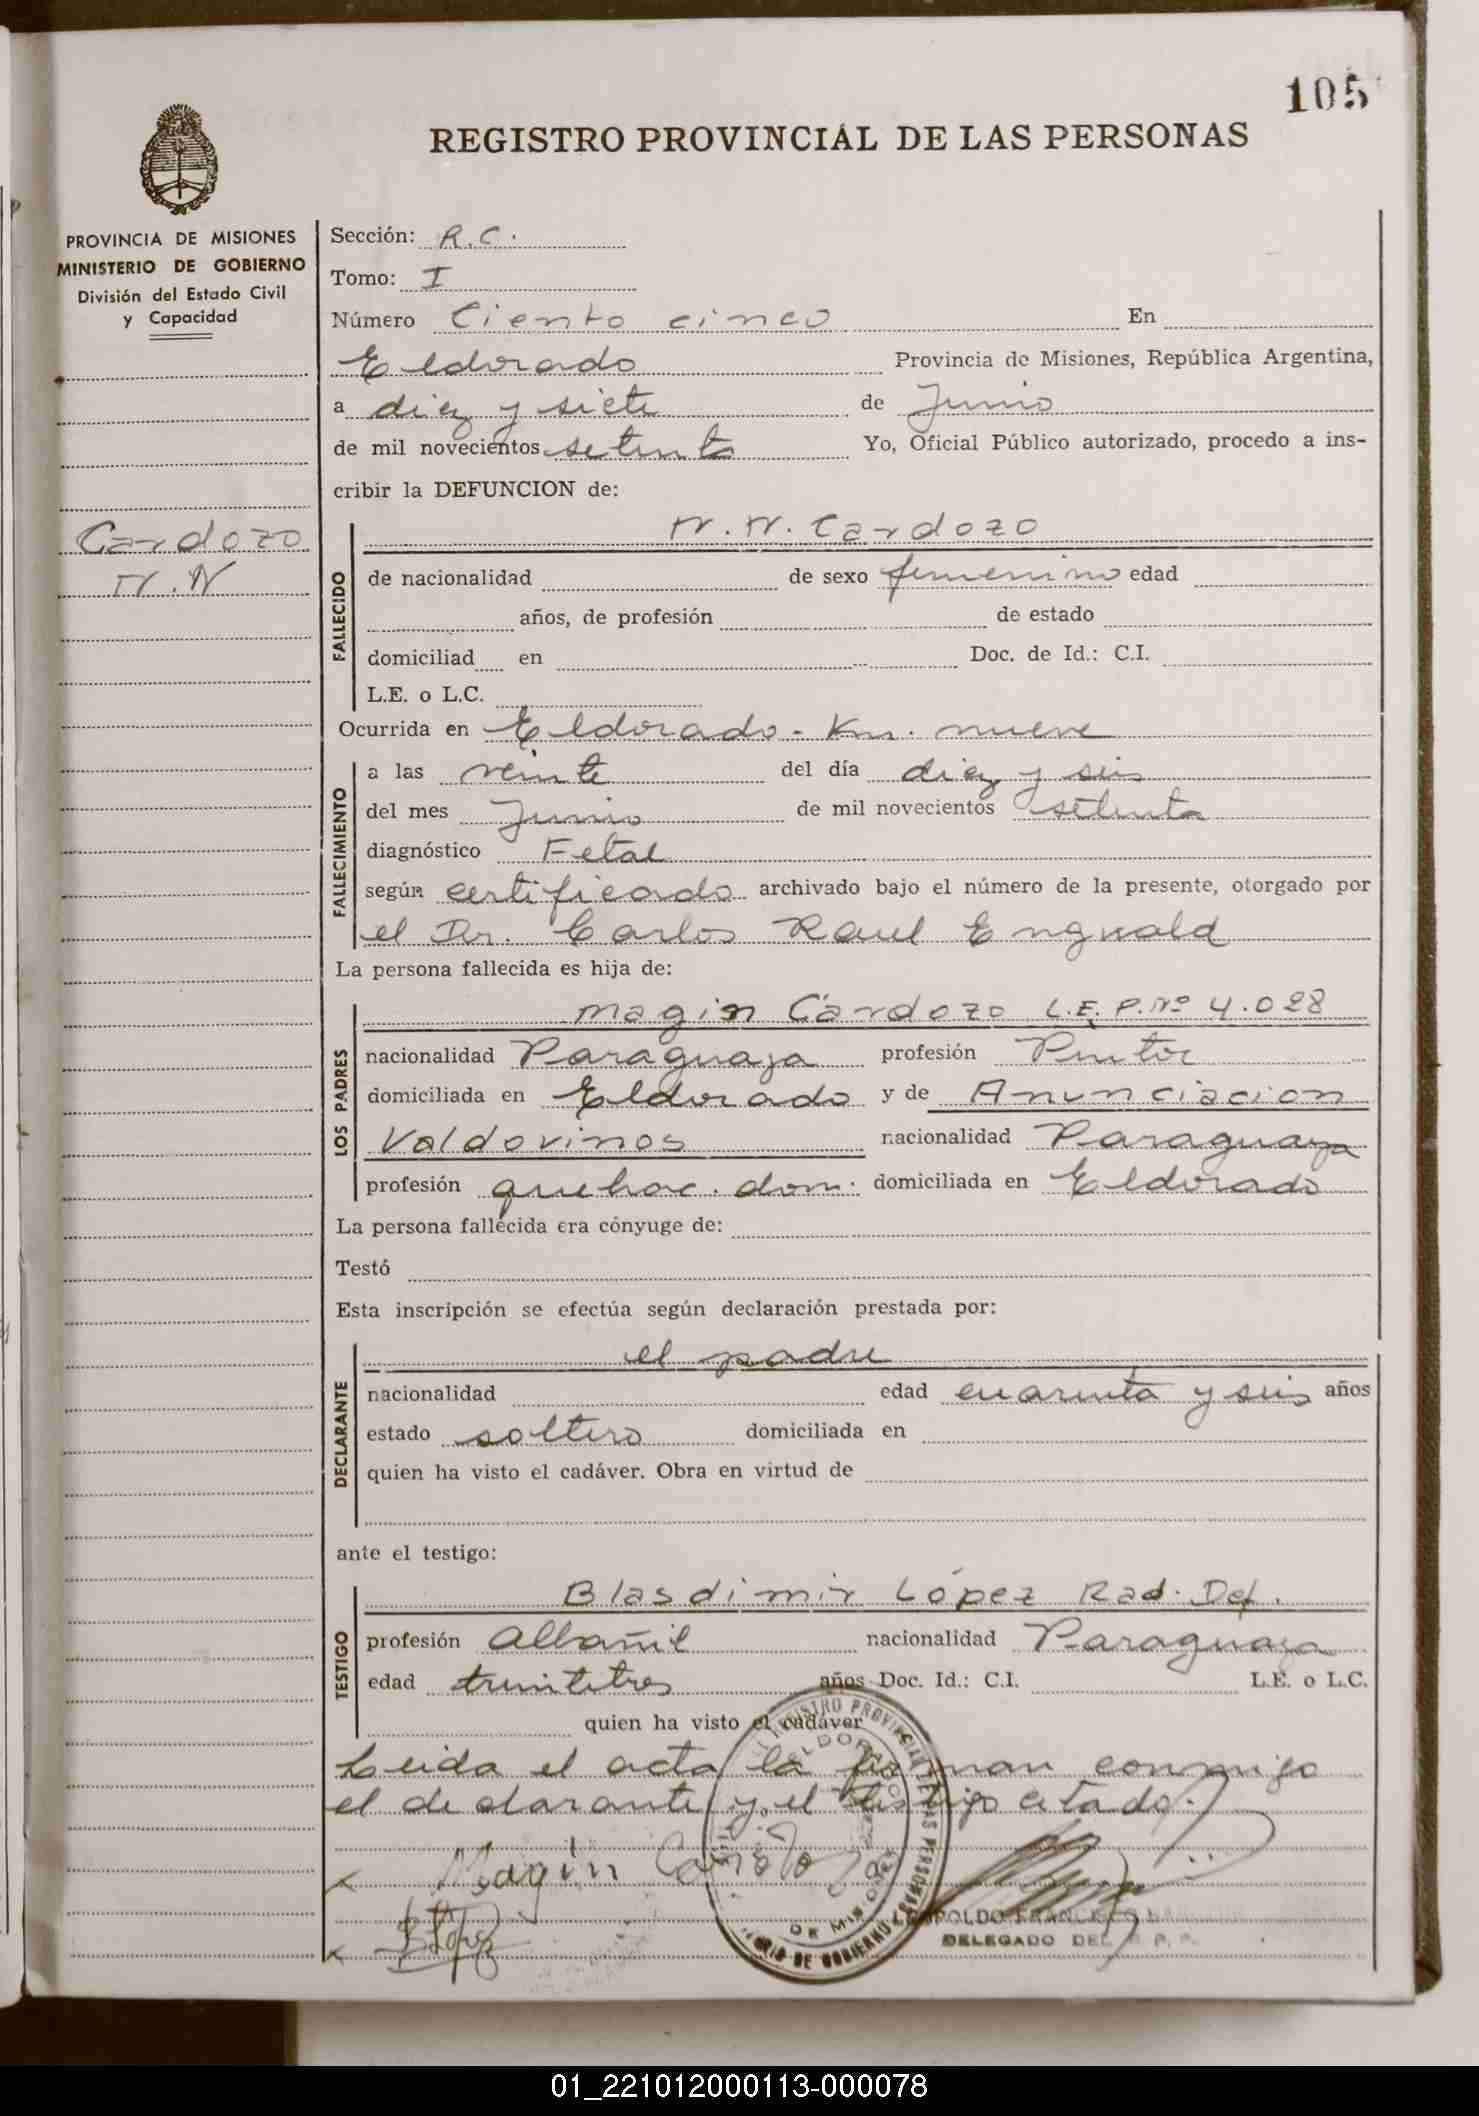 105
REGISTRO PROVINCIAL DE LAS PERSONAS
PROVINCIA DE MISIONES
MINISTERIO DE GOBIERNO
División del Estado Civil
y Capacidad
Cardozo
N.N
Sección: R.C.
Tomo: I
Número Ciento cinco En
Eldorado Provincia de Misiones, República Argentina,
a diez y siete de Junio
de mil novecientos setenta Yo, Oficial Público autorizado, procedo a ins-
cribir la DEFUNCION de:
FALLECIDO
N.N. Cardozo
de nacionalidad de sexo femenino edad
años, de profesión de estado
domiciliad en Doc. de Id.: C.I.
L.E. o L.C.
Ocurrida en Eldorado - Km. nueve
FALLECIMIENTO
a las veinte del día diez y seis
del mes Junio de mil novecientos setenta
diagnóstico Fetal
según certificado archivado bajo el número de la presente, otorgado por
el Dr. Carlos Raul Engwald
La persona fallecida es hija de:
LOS PADRES
Magin Cardozo L.E. P. Nº 4.028
nacionalidad Paraguaya profesión Pintor
domiciliada en Eldorado y de Anunciacion
Valdovinos nacionalidad Paraguaya
profesión quehac. dom. domiciliada en Eldorado
La persona fallecida era cónyuge de:
Testó
Esta inscripción se efectúa según declaración prestada por:
DECLARANTE
el padre
nacionalidad edad cuarenta y seis años
estado soltero domiciliada en
quien ha visto el cadáver. Obra en virtud de
ante el testigo:
TESTIGO
Blasdimir López Rad. Def.
profesión Albañil nacionalidad Paraguaya
edad treintitres años Doc. Id.: C.I. L.E. o L.C.
quien ha visto el cadáver
Leida el acta la firman conmigo
el declarante y el testigo citado.
Magin Cardozo
B López
REGISTRO PROVINCIAL DE LAS PERSONAS
ELDORADO
DE MISIONES
DE GOBIERNO
DELEGADO DEL R. P. P.
01_221012000113-000078